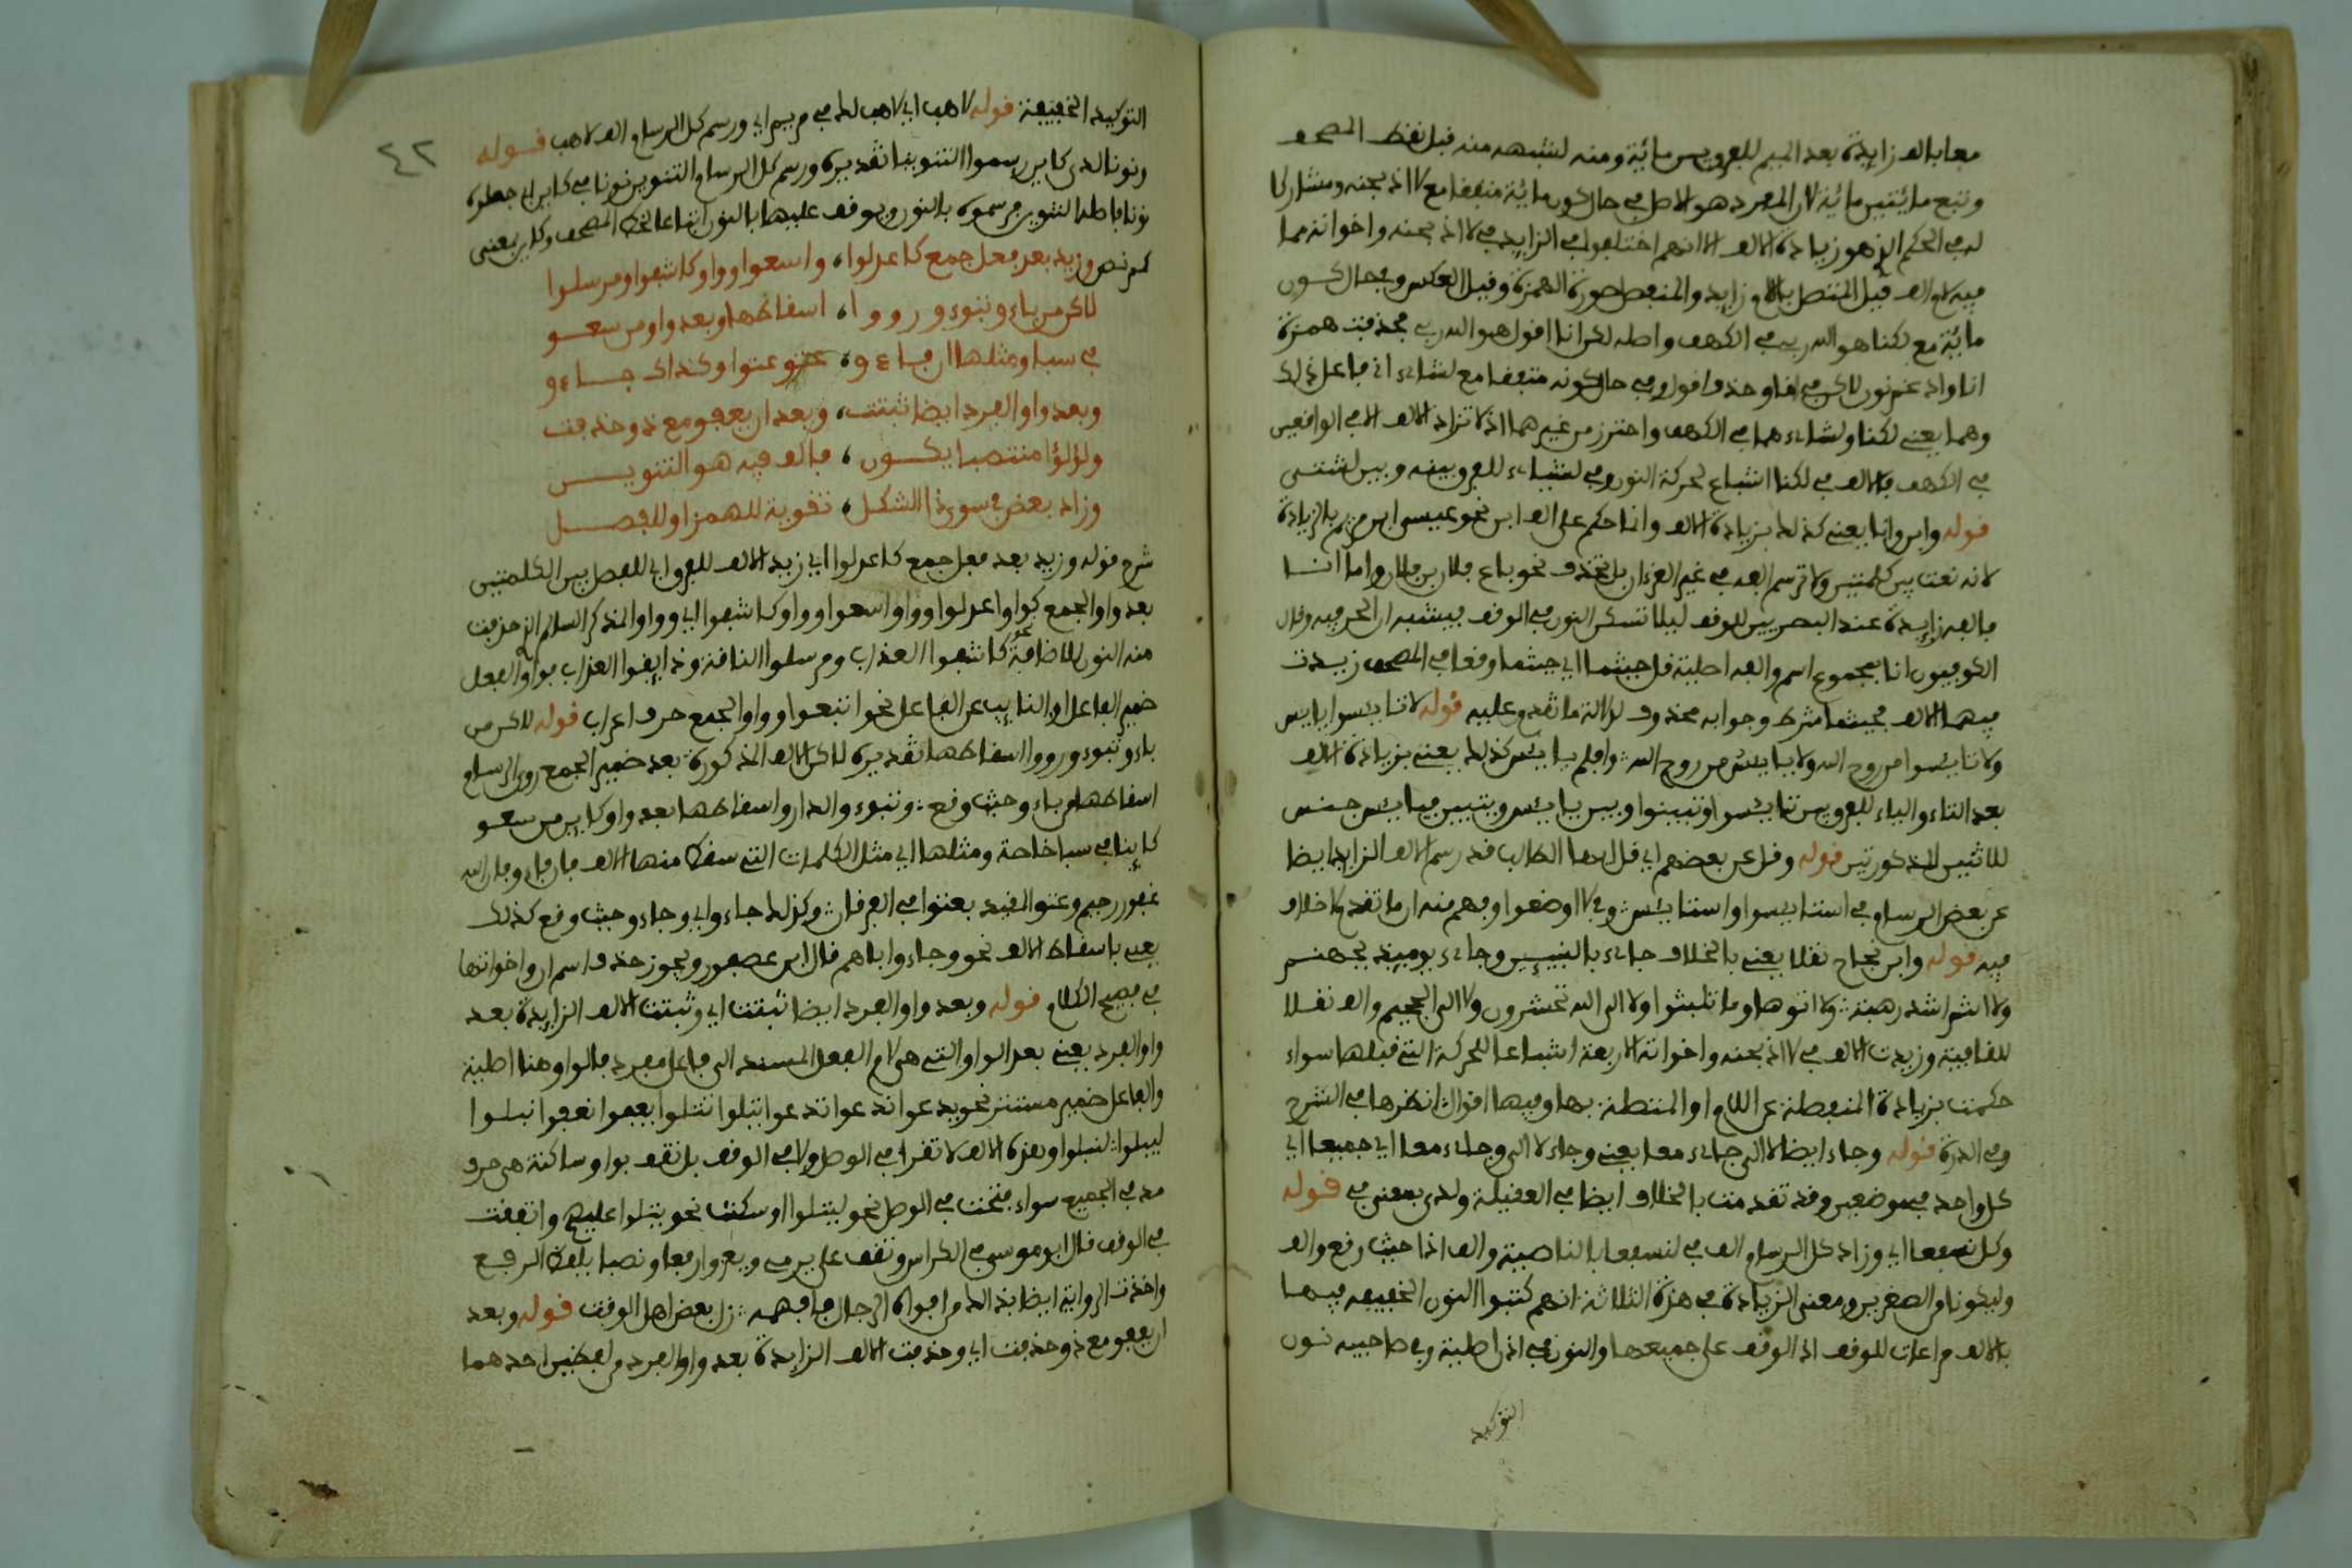 معا بالف زايدة بعد الميم للفرق بين مائة ومنه لشبهه منه قبل نقط المصحف
وتبع مائتين مائة لان المفرد هو الاصل في حال كون مائة متفقا مع لا اذبحنه ومشاركا
له في الحكم الذي هو زيادة الالف الا انهم اختلفوا في الزايد في لا اذبحنه واخواته مما
فيه لام الف فقيل المتصل باللام زايد والمنفصل صورة الهمزة وقيل العكس وفي حال كون
مائة مع لكنا هو الله ربي في الكهف واصله لكن انا اقول هو الله ربي فحذفت همزة
انا وادغم نون لكن في انا وحذف اقول وفي حال كونه متفقا مع لشاىء اني فاعل ذلك
وهما يعني لكنا ولشاىء هما في الكهف واحترز من غيرهما اذ لا تزاد الالف الا في الواقعين
في الكهف فالالف في لكنا اشباع لحركة النون وفي لشاىء للفرق بينه وبين لشتى
قوله وابن وانا يعني كذلك بزيادة الالف وانما حكم على الف ابن نحو عيسى ابن مريم بالزيادة
لانه نعت بين كلمتين ولا ترسم الفه في غير القرءان بل تحذف نحو باع فلان بن فلان واما انا
فالفه زايدة عند البصريين للوقف ليلا تسكن النون في الوقف فيشبه ان الحرفية وقال
الكوفيون انا بمجموع اسم والفه اصلية قل حيثما اي حيثما وقعا في المصحف زيدت
فيهما الالف فحيثما شرط وجوابه محذوف لدلالة ما تقدم عليه قوله لا تايسوا يايس
ولا تايسوا من روح الله ولا يايس من روح الله وافلم يايس كذلك يعني بزيادة الالف
بعد التاء والياء للفرق بين تايسوا وتبينوا وبين يايس ويتبين فيايس جنس
للاثنين المذكورتين قوله وقل عن بعضهم اي قل ايها الطالب قد رسم الالف الزايد ايضا
عن بعض الرسام في استايسوا واستايس ولا اوضعوا وفهم منه ان ما تقدم لا خلاف
فيه قوله وابن نجاح نقلا يعني بالخلاف جاىء بالنبيين وجاىء يوميذ بجهنم
ولا انتم اشد رهبة ولا اتوها وما تلبثوا ولا الى الله تحشرون ولا الى الجحيم والف نقلا
للقافية وزيدت الالف في لا اذبحنه واخواته الاربعة اشباعا للحركة التي قبلها سواء
حكمت بزيادة المنفصلة عن اللام او المتصلة بها وفيها اقوال انظرها في الشرح
وفي الدرة قوله وجاء ايضا لا الى جاىء معا يعني وجاء لا الى وجاىء معا اي جميعا اي
كل واحد في موضعين وقد تقدمت بالخلاف ايضا في العقيلة ولدى بمعنى في قوله
وكل نسفعا اي وزاد كل الرسام الف في لنسفعا بالناصية والف اذا حيث وقع والف
وليكونا من الصغرين ومعنى الزيادة في هذه الثلاثة انهم كتبوا النون الخفيفة فيهما
بالالف مراعات للوقف اذ الوقف على جميعها والنون في اذا اصلية وفي صاحبيه نون
التوكيد
٤٢
التوكيد الخفيفة قوله لاهب اي لاهب لك في مريم اي ورسم كل الرسام الف لاهب قوله
ونونا لدى كاين رسموا التنوينا تقديره ورسم كل الرسام التنوين نونا في كاين اي جعلوه
نونا فاصل التنوين مرسومة بالنون ويوقف عليها بالنون اتباعا لخط المصحف وكاين بمعنى
كم نص وزيد بعد فعل جمع كاعدلوا، واسعوا وواو كاشفوا ومرسلوا
لاكن من باءو تبوءو رووا، اسقاطها وبعد واو من سعو
في سبا ومثلها ان فاءو، عتو عتوا وكذاك جاءو
وبعد واو الفرد ايضا ثبتت، وبعد ان يعفو مع ذو حذفت
ولؤلؤا منتصبا يكون، بالف فيه هو التنوين
وزاد بعض في سوى ذا الشكل، تقوية للهمز او للفصل
شرح قوله وزيد بعد فعل جمع كاعدلوا اي زيد الالف للفرق اي للفصل بين الكلمتين
بعد واو الجمع كواو اعدلوا وواو اسعوا وواو كاشفوا اي وواو المذكر السلام الذي حذفت
منه النون للاضافة نحو كاشفوا العذاب ومرسلوا الناقة وذايقوا العذاب فواو الفعل
ضمير الفاعل او النايب عن الفاعل نحو اتبعوا وواو الجمع حرف اعراب قوله لاكن من
باءو تبوءو ورووا اسقاطها تقديره لاكن الالف المذكورة بعد ضمير الجمع روى الرسام
اسقاطها من باءو حيث وقع وتبوءو الدار واسقاطها بعد واو كاين من سعو
كاينا في سبا خاصة ومثلها اي مثل الكلمات التي سقط منها الالف فان فاءو فان الله
غفور رحيم وعتو المقيد بعتوا في الفرقان وكذلك جاءو اي وجاءو حيث وقع كذلك
يعني باسقاط الالف نحو وجاءو اباهم قال ابن عصفور ويجوز حذف اسم ان واخواتها
في فصيح الكلام قوله وبعد واو الفرد ايضا ثبتت اي وثبتت الالف الزايدة بعد
واو الفرد يعني بعد الواو التي هي لام الفعل المسند الى فاعل مفرد فالواو هنا اصلية
والفاعل ضمير مستتر نحو يدعوا ندعوا تدعوا تبلوا تتلوا يعفوا نعفوا نبلوا
ليبلوا لنبلوا وهذه الالف لا تقرا في الوصل ولا في الوقف بل تقف بواو ساكنة هي حرف
مد في الجميع سواء فتحت في الوصل نحو ليتلوا او سكنت نحو يتلوا عليهم واتفقت
في الوقف قال ابو موسى في الكراس وتقف على يرمي ويغزو رفعا ونصبا بلفظ الرفع
واخذت الرواية ايضا بذلك من افواه الرجال فافهمه بعض اهل الوقت قوله وبعد
ان يعفو مع ذو حذفت اي وحذفت الالف الزايدة بعد واو الفرد في لفظين احدهما